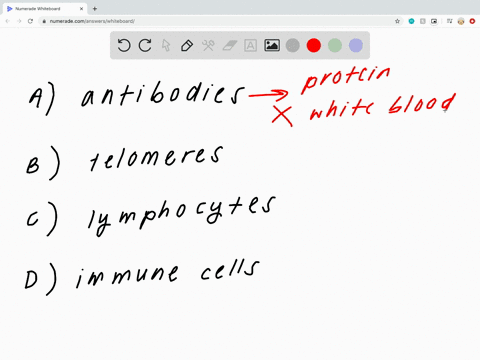 Numerade Whiteboard
numerade.com/answers/whiteboard/
A) antibodies → protein
X white blood
B) telomeres
C) lymphocytes
D) immune cells